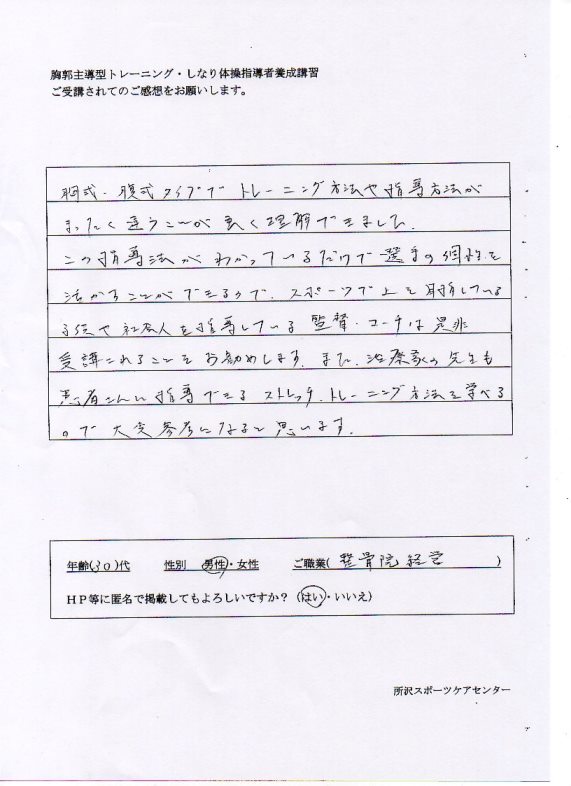 胸郭主導型トレーニング・しなり体操指導者養成講習
ご受講されてのご感想をお願いします。
胸式・腹式タイプで トレーニング方法や指導方法が
まったく違うことが良く理解できました。
この指導法が わかっているだけで 選手の個性を
活かすことができるので、スポーツで上を目指している
子供や社会人を指導している 監督・コーチは是非
受講されることをお勧めします。また、治療家の先生も
患者さんに指導できる ストレッチ、トレーニング方法を学べる
ので 大変参考になると思います。
年齢(30)代 性別 男性・女性 ご職業( 整骨院経営 )
HP等に匿名で掲載してもよろしいですか? (はい・いいえ)
所沢スポーツケアセンター